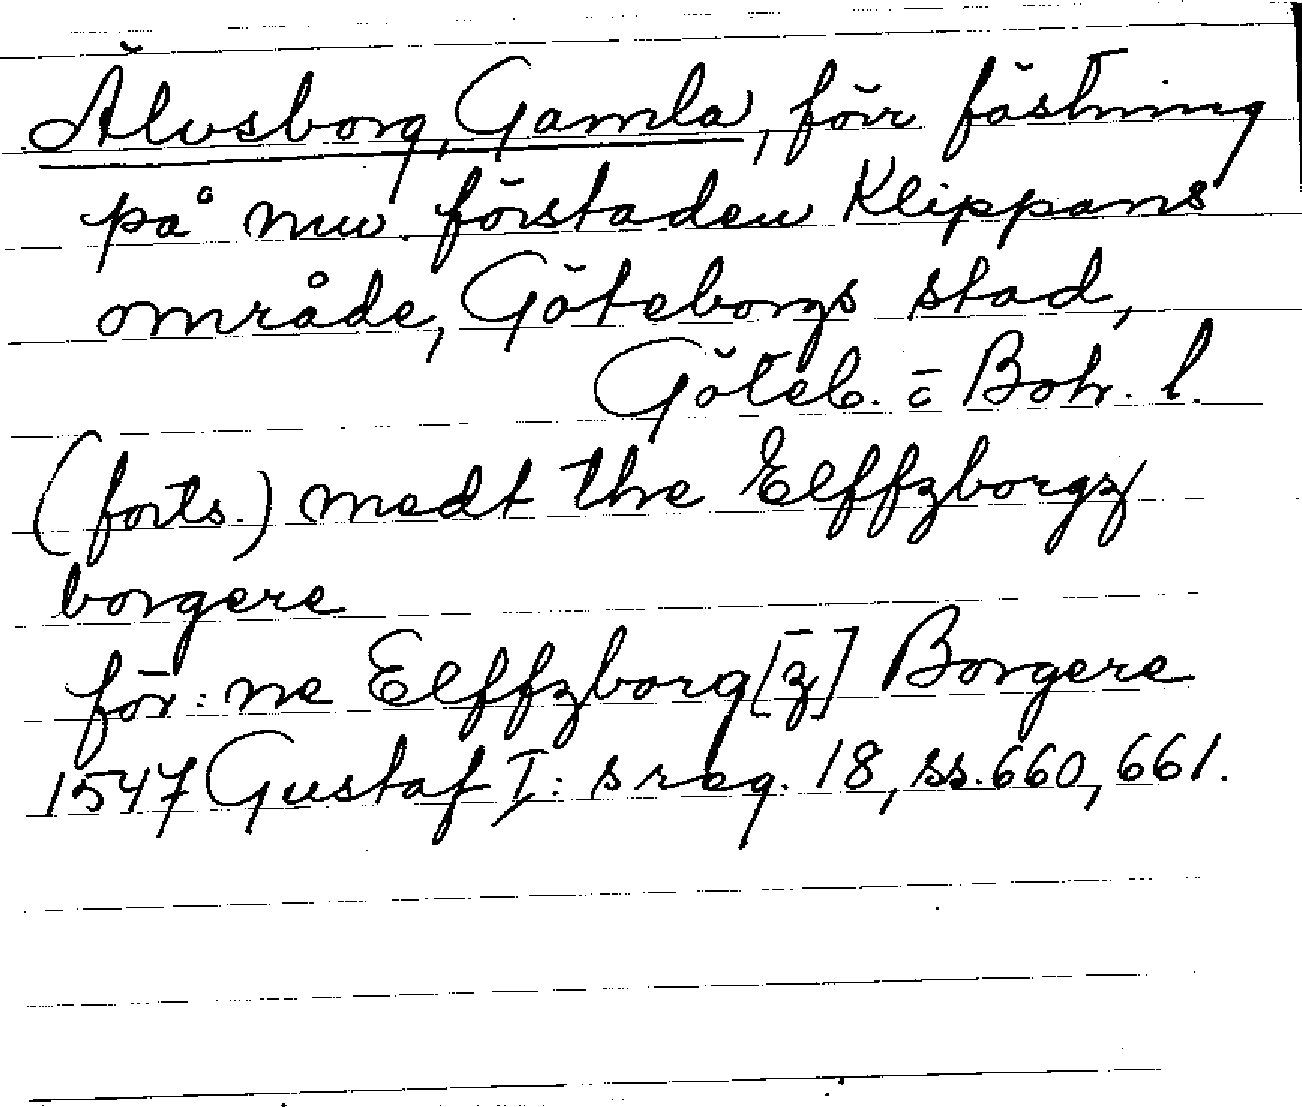 Älvsborg, Gamla, förr fästning
på nuv. förstaden Klippans
område, Göteborgs stad,
Göteb. o. Boh. l.
(forts.) medt the Elffzborgz
borgere
för:ne Elffzborg[z] Borgere
1547 Gustaf I:s reg. 18, ss. 660, 661.